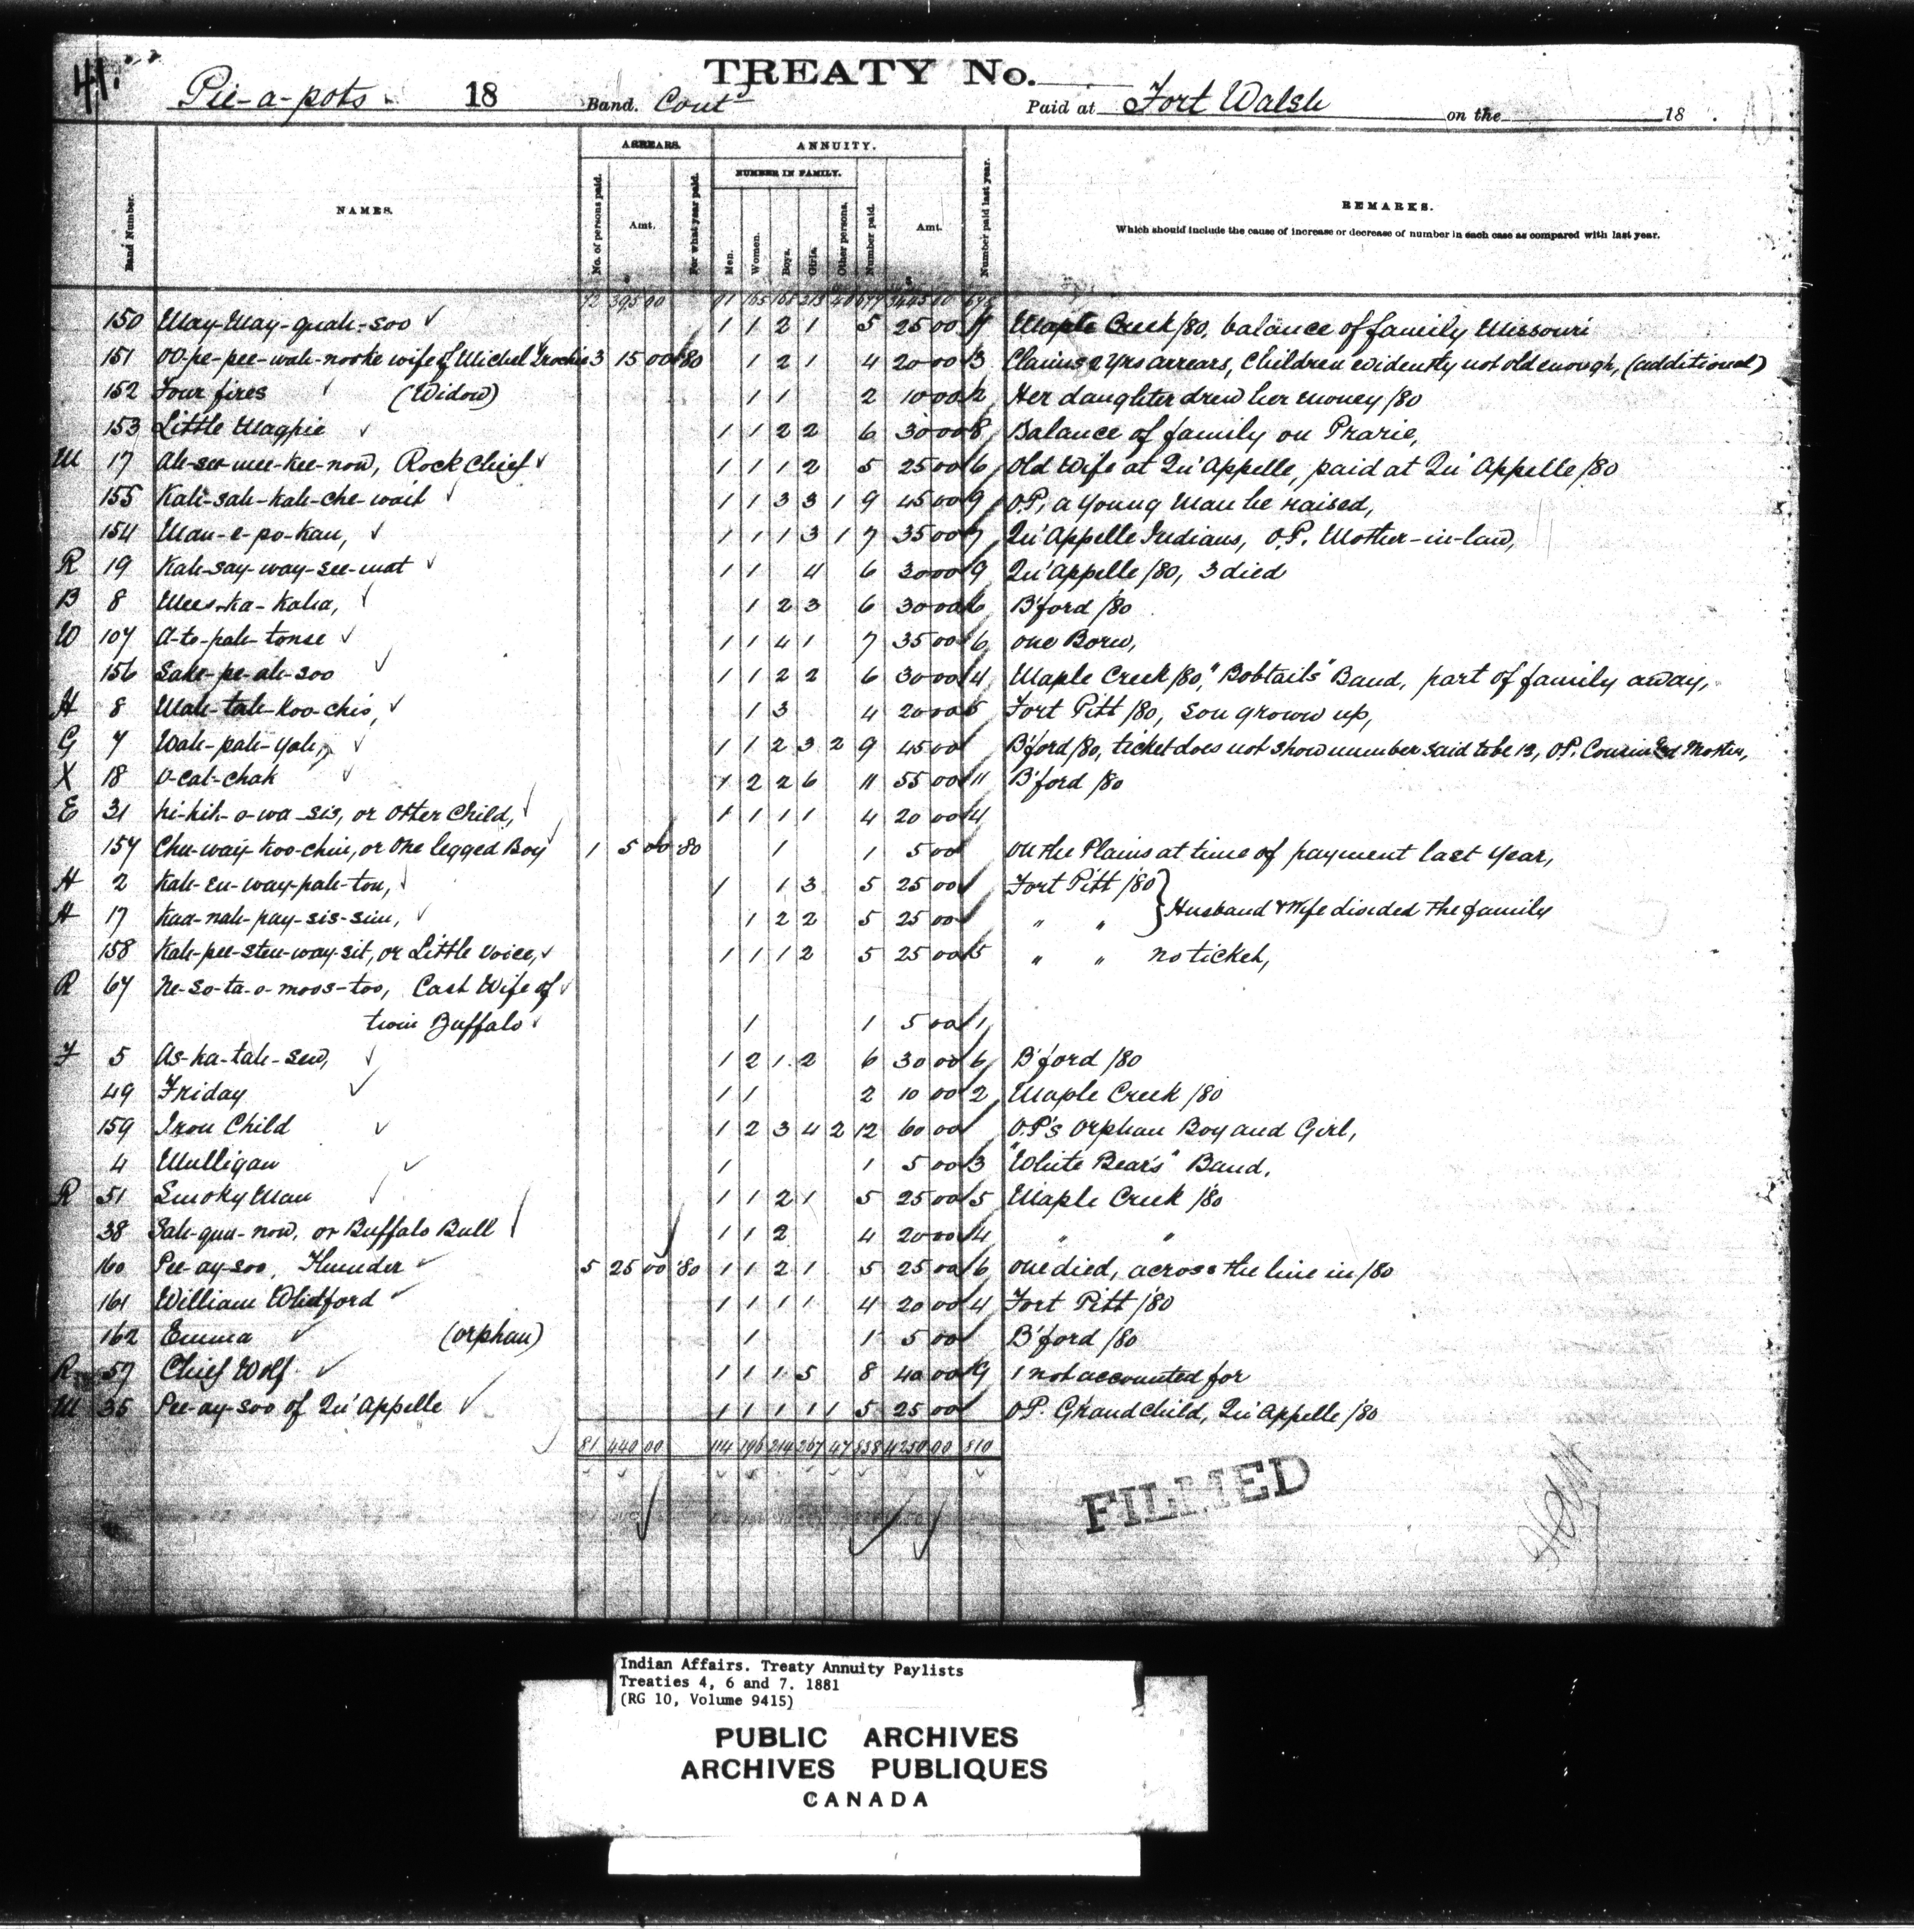 41.
TREATY No.
Pie-a-pots 18 Band. Cont'd Paid at Fort Walsh on the 18 .
ARREARS. ANNUITY.
NUMBER IN FAMILY.
Band Number. NAMES. No. of persons paid. Amt. For what year paid. Men. Women. Boys. Girls. Other persons. Number paid. Amt. Number paid last year. REMARKS.
Which should include the cause of increase or decrease of number in each case as compared with last year.
72 395 00
150 May-May-quah-soo ✓ 1 1 2 1 5 25 00 Maple Creek /80, balance of family Missouri
151 OO-pe-pee-wah-nooke wife of Michel 3 15 00 /80 1 2 1 4 20 00 3 Claims 2 Yrs arrears, Children evidently not old enough, (additional)
152 Four fires ✓ (Widow) 1 1 2 10 00 2 Her daughter drew her money /80
153 Little Magpie ✓ 1 1 2 2 6 30 00 8 Balance of family on Prarie,
M 17 Ah-see-mee-kee-now, Rock Chief ✓ 1 1 1 2 5 25 00 6 Old Wife at Qu'Appelle, paid at Qu'Appelle /80
155 Kah-sah-kah-che-wait ✓ 1 1 3 3 1 9 45 00 9 O.P, a Young Man he raised,
154 Man-e-po-kau, ✓ 1 1 1 3 1 7 35 00 7 Qu'Appelle Indians, O.P. Mother-in-law,
R 19 Kah-say-way-see-mat ✓ 1 1 4 6 30 00 9 Qu'Appelle /80, 3 died
B 8 Mees-ka-kaha, ✓ 1 2 3 6 30 00 6 B'ford /80
W 107 A-to-pah-tonse ✓ 1 1 4 1 7 35 00 6 one Born,
156 Sake-pe-ah-soo ✓ 1 1 2 2 6 30 00 4 Maple Creek /80, "Bobtails" Band, part of family away,
H 8 Mah-tah-koo-chis, ✓ 1 3 4 20 00 5 Fort Pitt /80, Son grown up,
G 7 Wah-pah-yah, ✓ 1 1 2 3 2 9 45 00 B'ford /80, ticket does not show number said to be 13, OP. Cousin and Mother,
X 18 O-cat-chak ✓ 1 2 2 6 11 55 00 11 B'ford /80
E 31 Ki-kih-o-wa-sis, or Otter Child, ✓ 1 1 1 1 4 20 00 4
157 Chu-way-koo-chin, or One legged Boy ✓ 1 5 00 80 1 1 5 00 on the Plains at time of payment last Year,
H 2 Kah-en-way-pah-tou, ✓ 1 1 3 5 25 00 Fort Pitt /80 } Husband & Wife divided the family
H 17 Kaa-nah-pay-sis-sim, ✓ 1 2 2 5 25 00 " "
158 Kah-pee-steu-way-sit, or Little Voice, ✓ 1 1 1 2 5 25 00 5 " " no ticket,
R 67 Ne-so-ta-o-moos-too, Cast Wife of ✓
twin Buffalo ✓ 1 1 5 00 1
F 5 As-ka-tah-sew, ✓ 1 2 1 2 6 30 00 6 B'ford /80
49 Friday ✓ 1 1 2 10 00 2 Maple Creek /80
159 Iron Child ✓ 1 2 3 4 2 12 60 00 O.P's Orphan Boy and Girl,
4 Mulligan ✓ 1 1 5 00 3 "White Bear's" Band.
R 51 Smoky Man ✓ 1 1 2 1 5 25 00 5 Maple Creek /80
38 Sah-qua-now, or Buffalo Bull ✓ 1 1 2 4 20 00 4 " "
160 Pee-ay-soo, Thunder ✓ 5 25 00 '80 1 1 2 1 5 25 00 6 one died, across the line in /80
161 William Whitford ✓ 1 1 1 1 4 20 00 4 Fort Pitt /80
162 Emma ✓ (orphan) 1 1 5 00 B'ford /80
R 57 Chief Wolf ✓ 1 1 1 5 8 40 00 9 1 not accounted for
M 35 Pee-ay-soo of Qu'Appelle ✓ 1 1 1 1 1 5 25 00 OP. Grand Child, Qu'Appelle /80
81 440 00 114 196 214 267 47 838 4250 00 810
FILMED
Indian Affairs. Treaty Annuity Paylists
Treaties 4, 6 and 7. 1881
(RG 10, Volume 9415)
PUBLIC ARCHIVES
ARCHIVES PUBLIQUES
CANADA